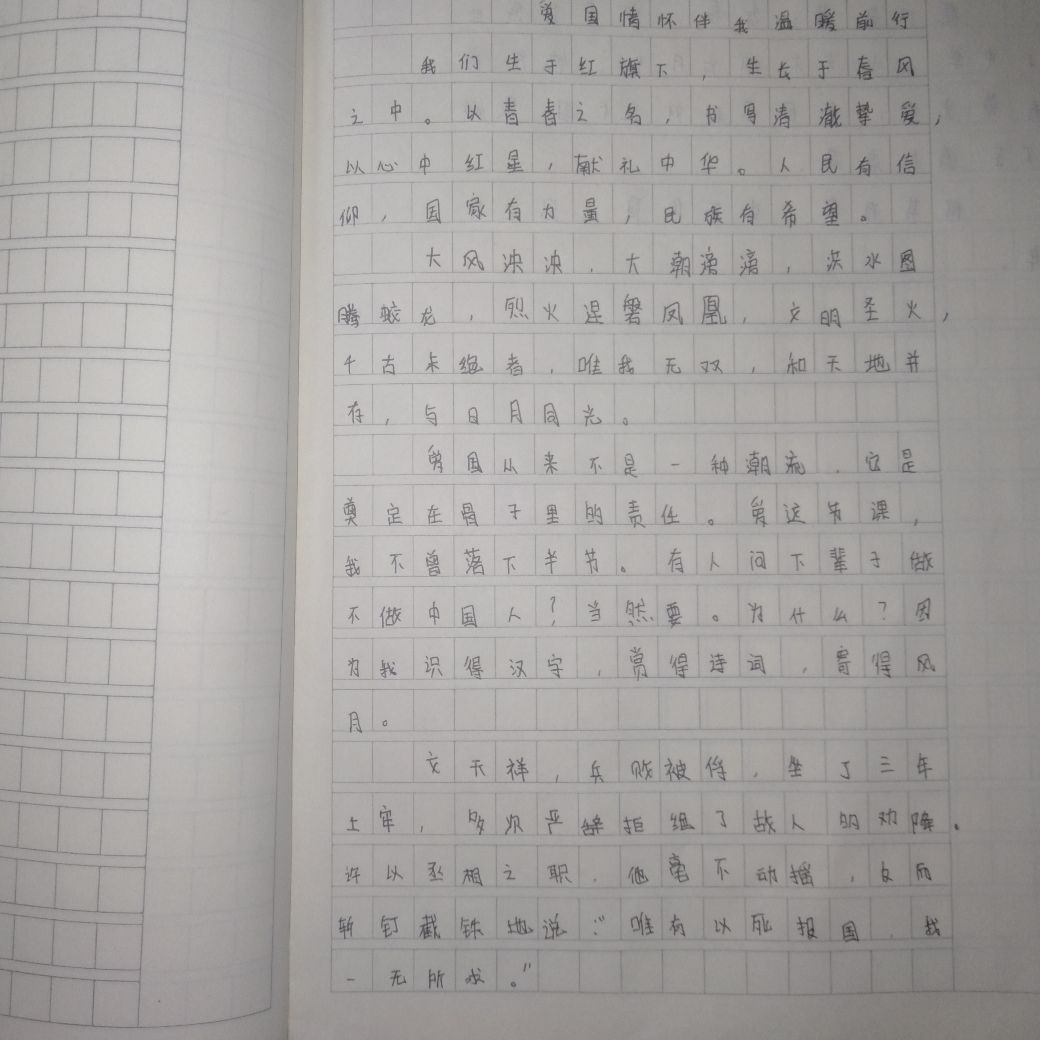 爱国情怀伴我温暖前行
我们生于红旗下，生长于春风
之中。以青春之名，书写清澈挚爱，
以心中红星，献礼中华。人民有信
仰，国家有力量，民族有希望。
大风泱泱，大潮滂滂，洪水图
腾蛟龙，烈火涅磐凤凰，文明圣火，
千古未绝者，唯我无双，和天地并
存，与日月同光。
爱国从来不是一种潮流，它是
奠定在骨子里的责任。爱这节课，
我不曾落下半节。有人问下辈子做
不做中国人？当然要。为什么？因
为我识得汉字，赏得诗词，寄得风
月。
文天祥，兵败被俘，坐了三年
土牢，多次严辞拒绝了敌人的劝降。
许以丞相之职，他毫不动摇，反而
斩钉截铁地说：“唯有以死报国，我
一无所求。”